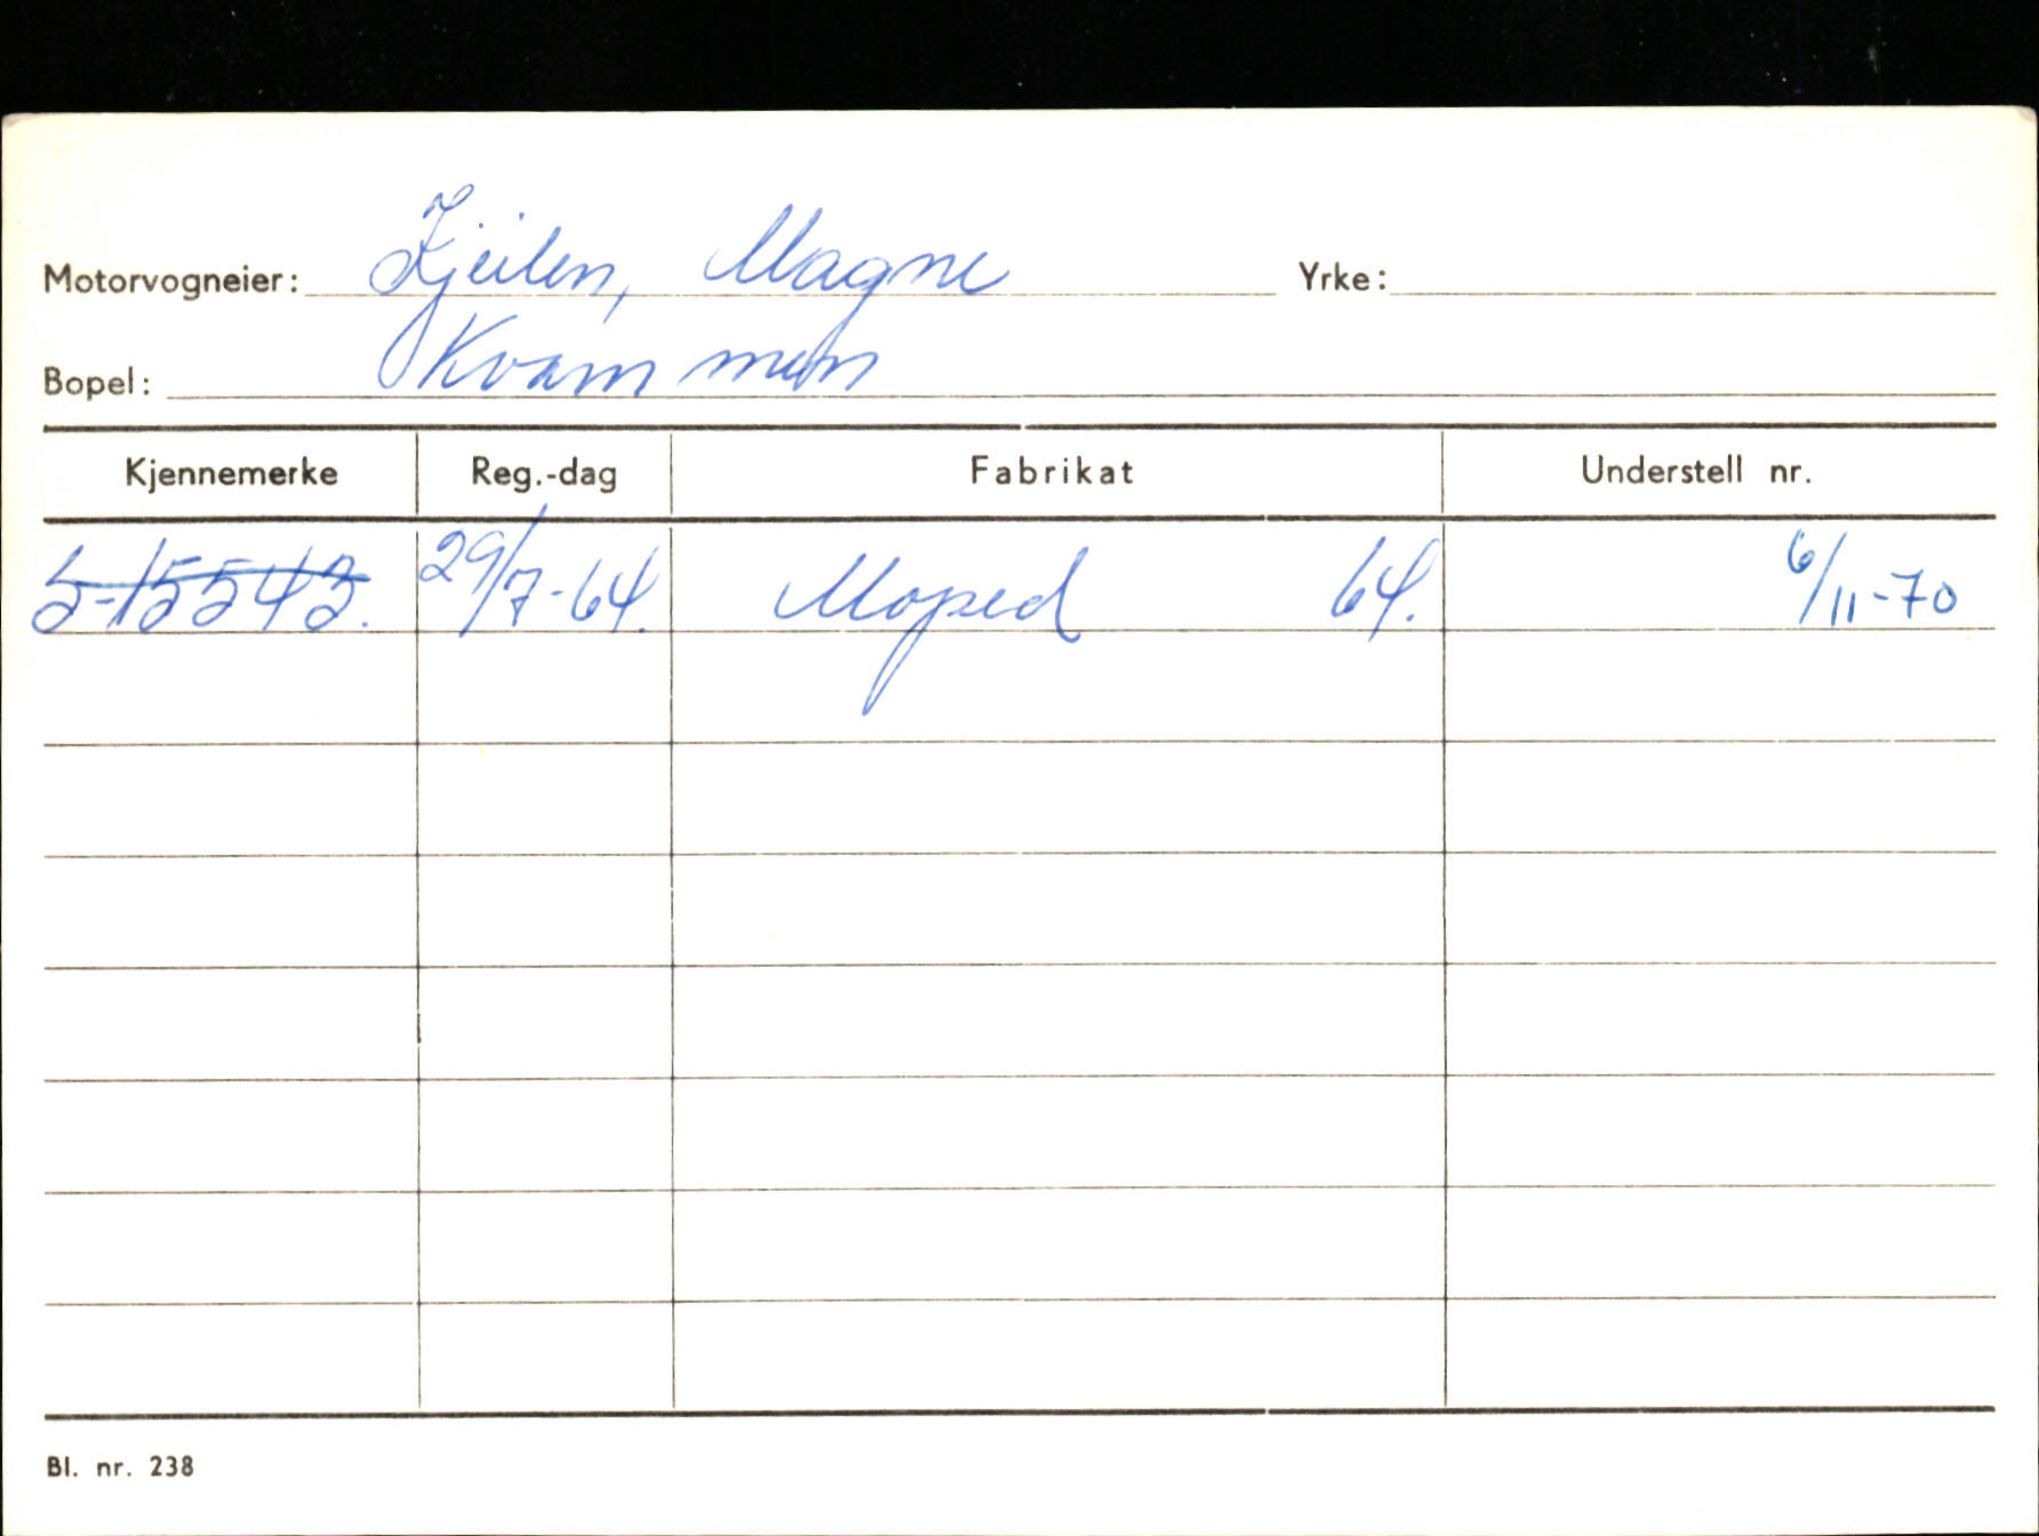 Motorvogneier: Kjeilen, Magne Yrke:
Bopel: Kvammen
Kjennemerke Reg.-dag Fabrikat Understell nr.
S-15543. 29/7-64. Moped 64. 6/11-70
Bl. nr. 238